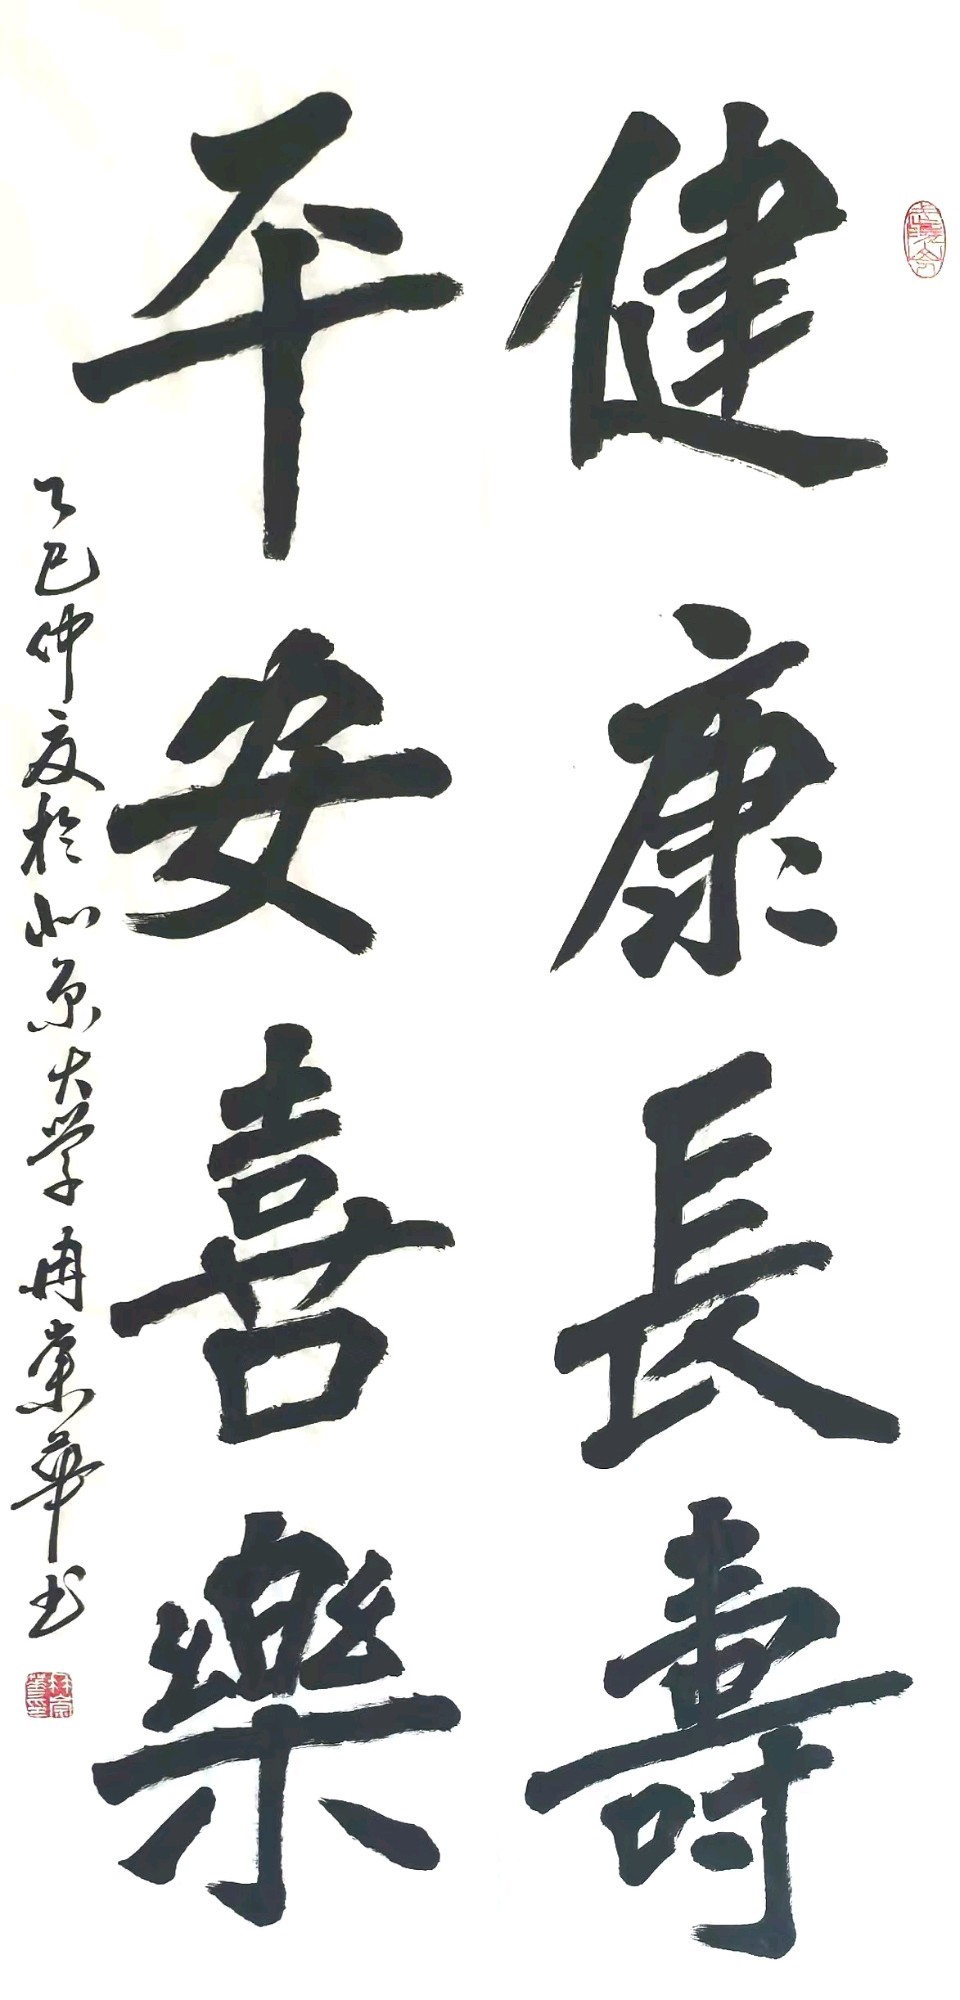 健康長壽
平安喜樂
乙巳仲夏於北京大学冉崇華书